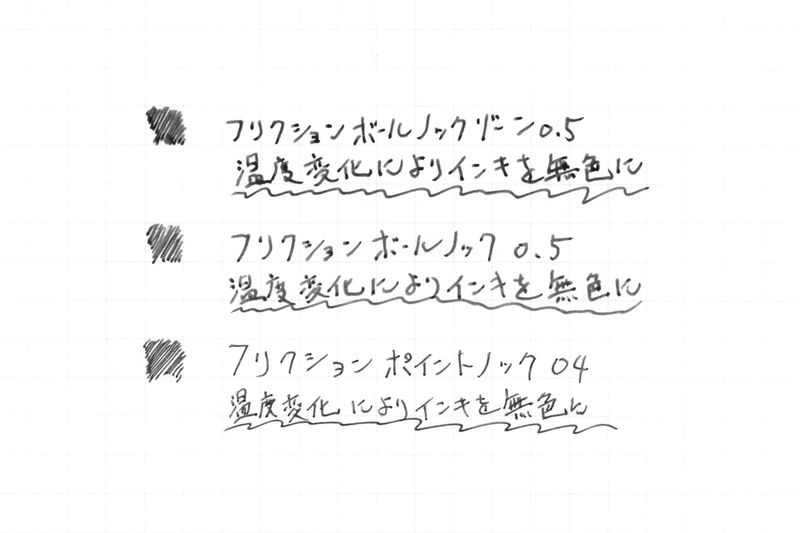 フリクションボールノックゾーン0.5
温度変化によりインキを無色に
フリクションボールノック 0.5
温度変化によりインキを無色に
フリクションポイントノック 04
温度変化によりインキを無色に